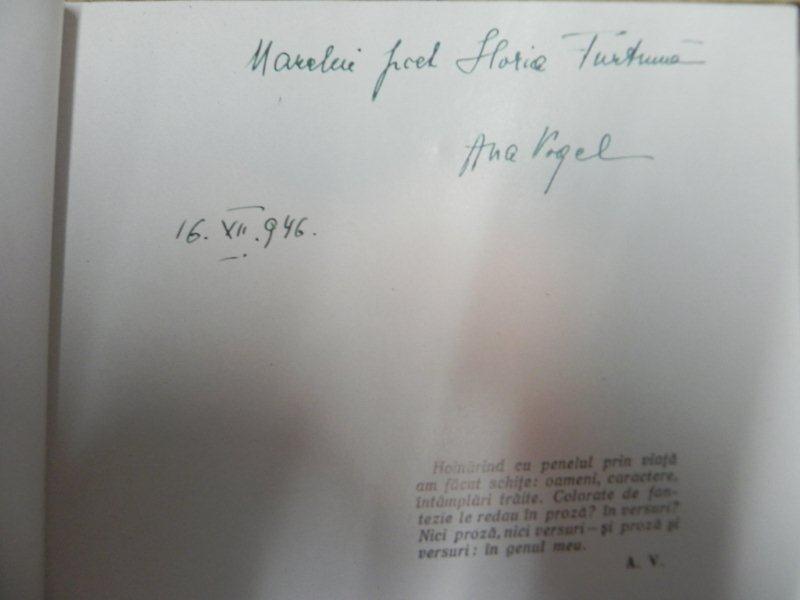 Marelui poet Horia Furtună
Ana Vogel
16. XII. 946.
Hoinărind cu penelul prin viață
am făcut schițe: oameni, caractere,
întâmplări trăite. Colorate de fan-
tezie le redau în proză? În versuri?
Nici proză, nici versuri — și proză și
versuri: în genul meu.
A. V.